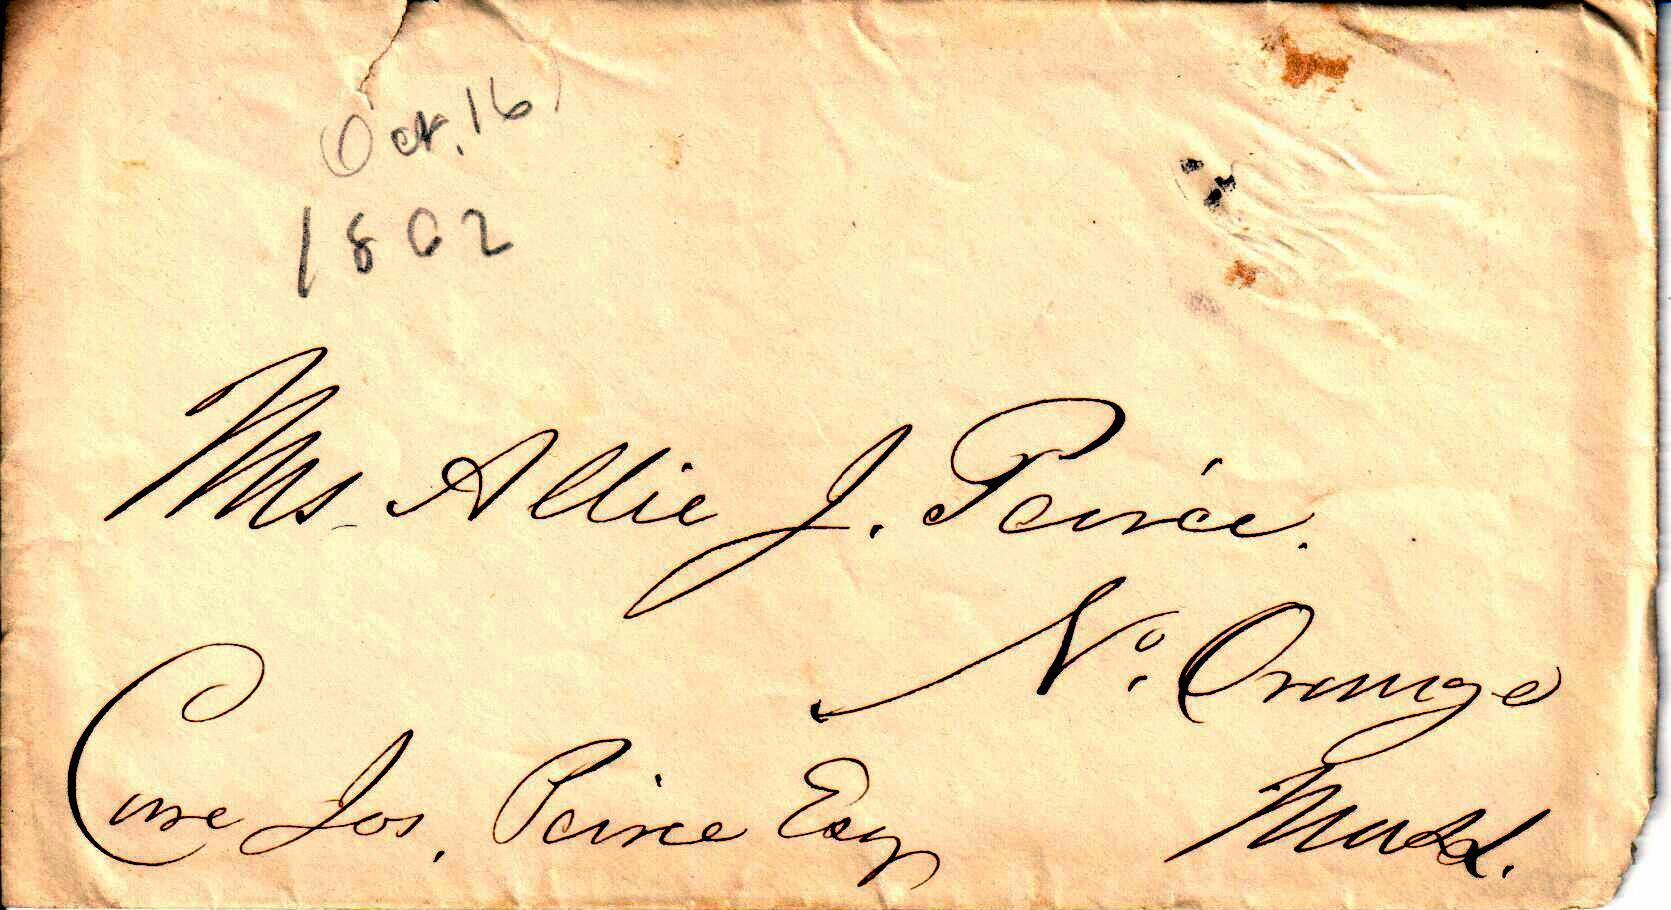 Oct. 16
1862
Mrs. Allie J. Peirce.
No. Orange
Care Jos. Peirce Esq
Mass.